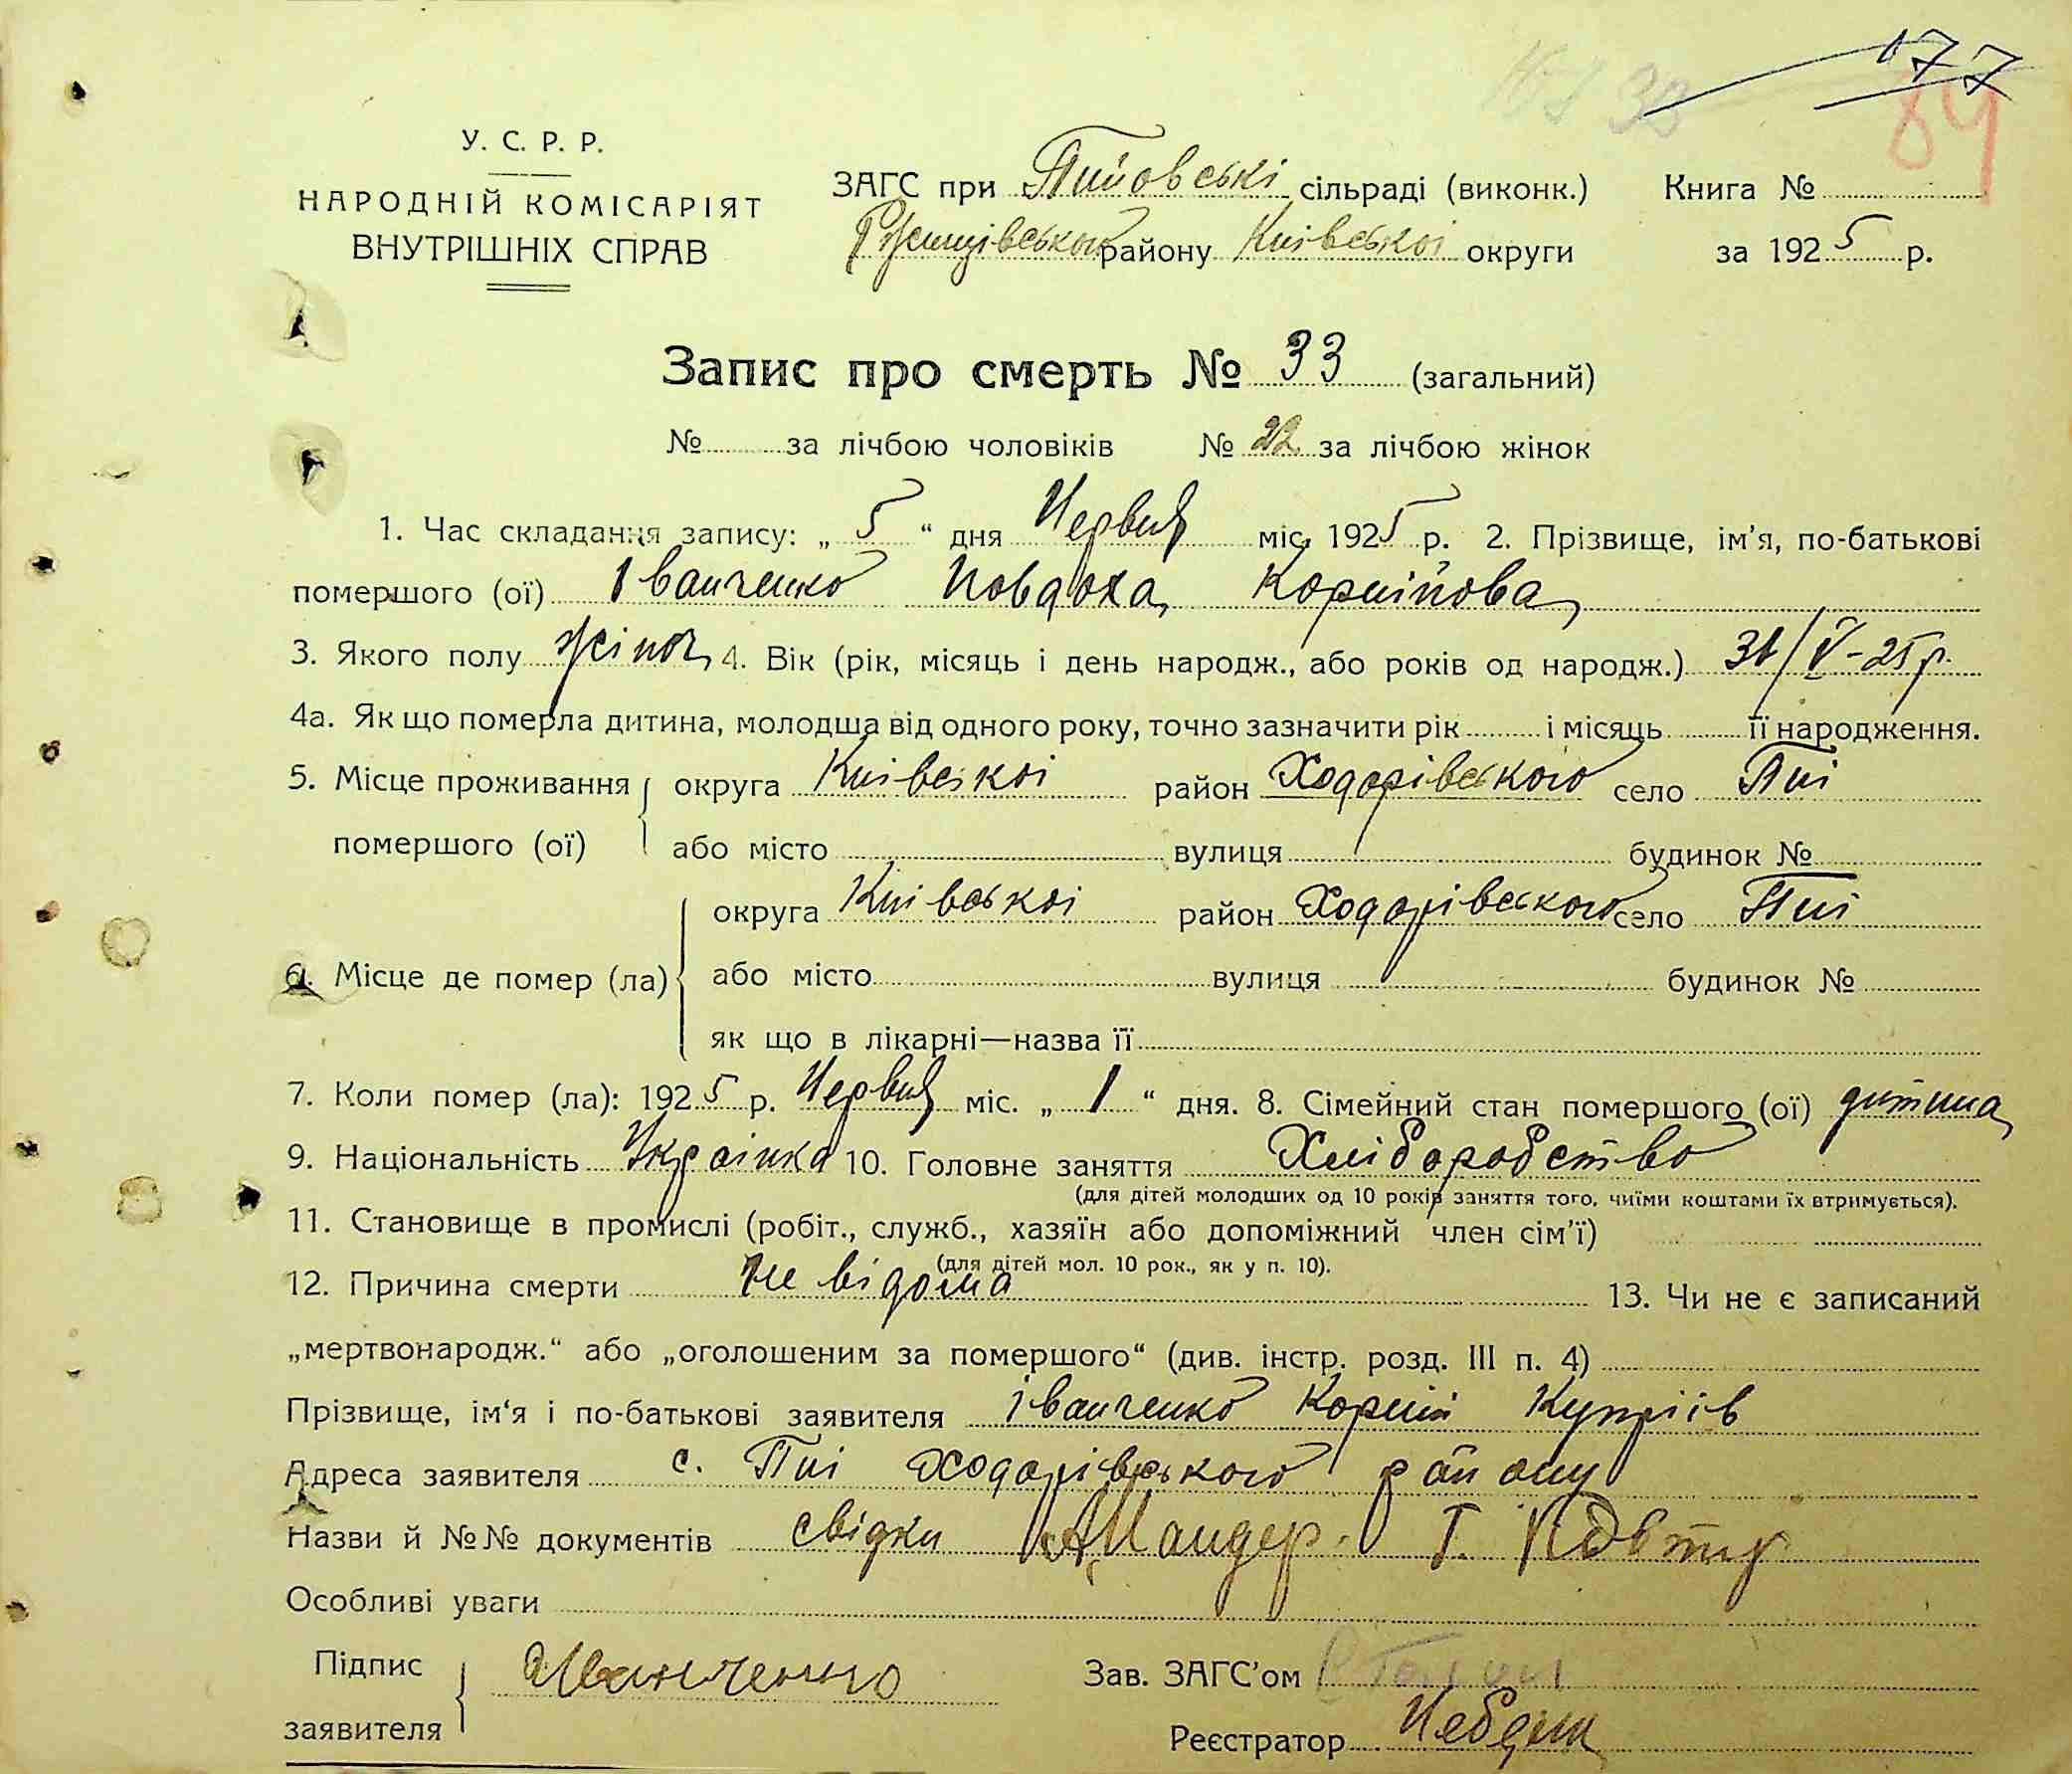 177
84
У. С. Р. Р.
НАРОДНІЙ КОМІСАРІЯТ
ВНУТРІШНІХ СПРАВ
ЗАГС при Пиїовські сільраді (виконк.) Книга №
Ржищівського району Київської округи за 1925 р.
Запис про смерть № 33 (загальний)
№ за лічбою чоловіків № 22 за лічбою жінок
1. Час складання запису: „ 5 “ дня Червня міс. 1925 р. 2. Прізвище, ім'я, по-батькові
помершого (ої) Іванченко Йовдоха Корнійова
3. Якого полу жіноч 4. Вік (рік, місяць і день народж., або років од народж.) 31/V-25 р.
4а. Як що померла дитина, молодша від одного року, точно зазначити рік і місяць її народження.
5. Місце проживання помершого (ої) округа Київської район Ходорівського село Пиї
або місто вулиця будинок №
6. Місце де помер (ла) округа Київської район Ходорівського село Пиї
або місто вулиця будинок №
як що в лікарні—назва її
7. Коли помер (ла): 1925 р. Червня міс. „ 1 “ дня. 8. Сімейний стан помершого (ої) дитина
9. Національність Українка 10. Головне заняття Хліборобство
(для дітей молодших од 10 років заняття того, чиїми коштами їх втримується).
11. Становище в промислі (робіт., служб., хазяїн або допоміжний член сім'ї)
(для дітей мол. 10 рок., як у п. 10).
12. Причина смерти Не відома 13. Чи не є записаний
„мертвонародж.“ або „оголошеним за помершого“ (див. інстр. розд. III п. 4)
Прізвище, ім'я і по-батькові заявителя Іванченко Корній Купріїв
Адреса заявителя с. Пиї Ходорівського району
Назви й №№ документів свідки
Особливі уваги
Підпис заявителя Иванченко
Зав. ЗАГС'ом
Реєстратор